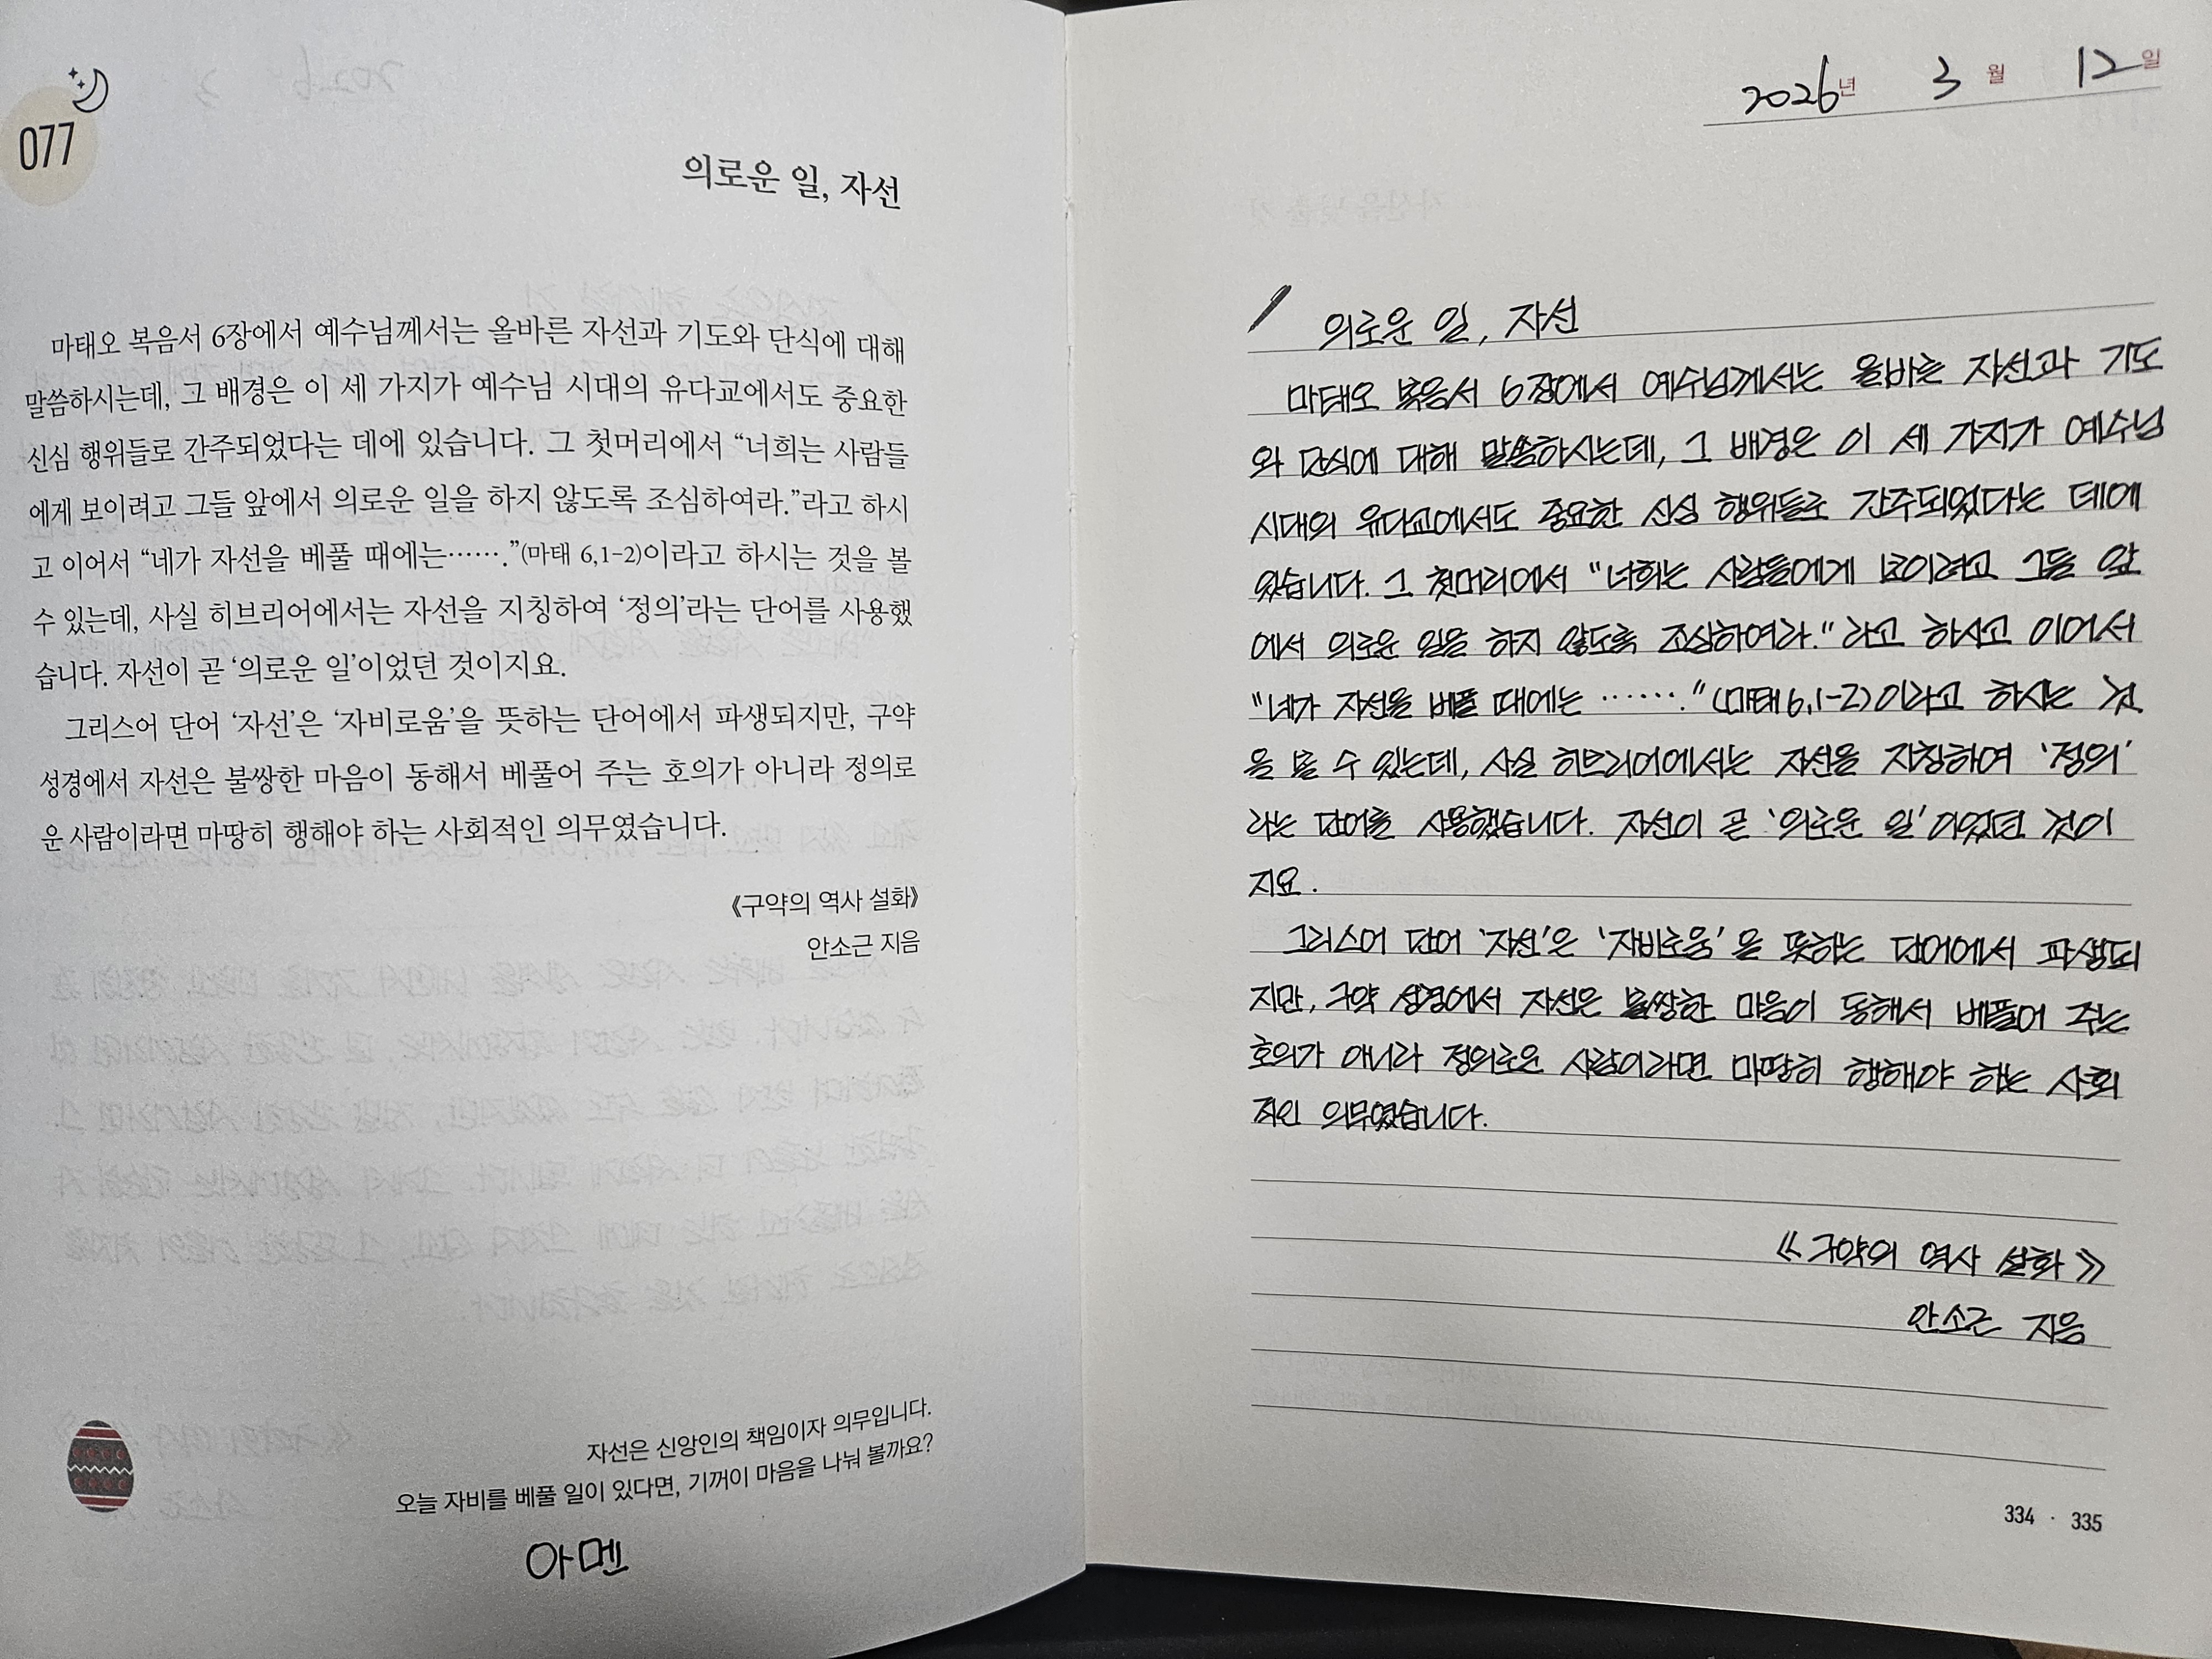 077
의로운 일, 자선
마태오 복음서 6장에서 예수님께서는 올바른 자선과 기도와 단식에 대해
말씀하시는데, 그 배경은 이 세 가지가 예수님 시대의 유다교에서도 중요한
신심 행위들로 간주되었다는 데에 있습니다. 그 첫머리에서 “너희는 사람들
에게 보이려고 그들 앞에서 의로운 일을 하지 않도록 조심하여라.”라고 하시
고 이어서 “네가 자선을 베풀 때에는…….”(마태 6,1-2)이라고 하시는 것을 볼
수 있는데, 사실 히브리어에서는 자선을 지칭하여 ‘정의’라는 단어를 사용했
습니다. 자선이 곧 ‘의로운 일’이었던 것이지요.
그리스어 단어 ‘자선’은 ‘자비로움’을 뜻하는 단어에서 파생되지만, 구약
성경에서 자선은 불쌍한 마음이 동해서 베풀어 주는 호의가 아니라 정의로
운 사람이라면 마땅히 행해야 하는 사회적인 의무였습니다.
《구약의 역사 설화》
안소근 지음
자선은 신앙인의 책임이자 의무입니다.
오늘 자비를 베풀 일이 있다면, 기꺼이 마음을 나눠 볼까요?
아멘
2026년 3월 12일
의로운 일, 자선
마태오 복음서 6장에서 예수님께서는 올바른 자선과 기도
와 단식에 대해 말씀하시는데, 그 배경은 이 세 가지가 예수님
시대의 유다교에서도 중요한 신심 행위들로 간주되었다는 데에
있습니다. 그 첫머리에서 “너희는 사람들에게 보이려고 그들 앞
에서 의로운 일을 하지 않도록 조심하여라.” 라고 하시고 이어서
“네가 자선을 베풀 때에는 …….” (마태 6,1-2)이라고 하시는 것
을 볼 수 있는데, 사실 히브리어에서는 자선을 지칭하여 ‘정의’
라는 단어를 사용했습니다. 자선이 곧 ‘의로운 일’이었던 것이
지요.
그리스어 단어 ‘자선’은 ‘자비로움’을 뜻하는 단어에서 파생되
지만, 구약 성경에서 자선은 불쌍한 마음이 동해서 베풀어 주는
호의가 아니라 정의로운 사람이라면 마땅히 행해야 하는 사회
적인 의무였습니다.
《구약의 역사 설화》
안소근 지음
334 · 335